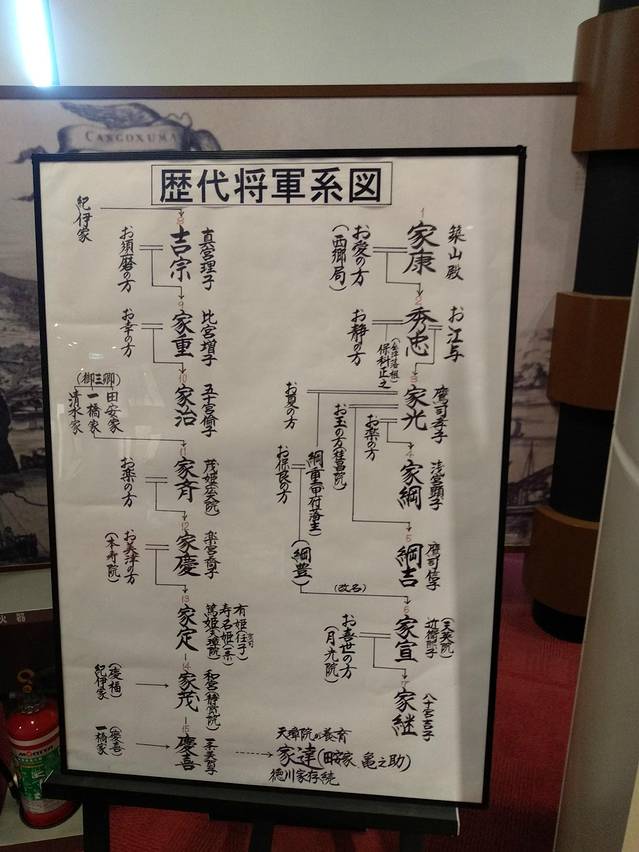 CANGOXUMA
歴代将軍系図
1
家康
築山殿
お愛の方
(西郷局)
2
秀忠
お江与
お静の方
保科正之
3
家光
鷹司孝子
お楽の方
お玉の方(桂昌院)
お夏の方
4
家綱
浅宮顕子
綱重甲府藩主
お保良の方
5
綱吉
鷹司信子
(綱豊)
(改名)
6
家宣
近衛熙子
お喜世の方
(月光院)
7
家継
八十宮吉子
紀伊家
8
吉宗
真宮理子
お須磨の方
9
家重
比宮増子
お幸の方
10
家治
五十宮倫子
(御三卿)
田安家
一橋家
清水家
11
家斉
お楽の方
12
家慶
楽宮喬子
お美津の方
(本寿院)
13
家定
有姫(任子)
寿名姫(秀子)
篤姫(天璋院)
14
家茂
和宮(静寛院)
(慶福)
紀伊家
15
慶喜
(慶喜)
一橋家
天璋院の養育
家達(田安家 亀之助)
徳川家存続
火器